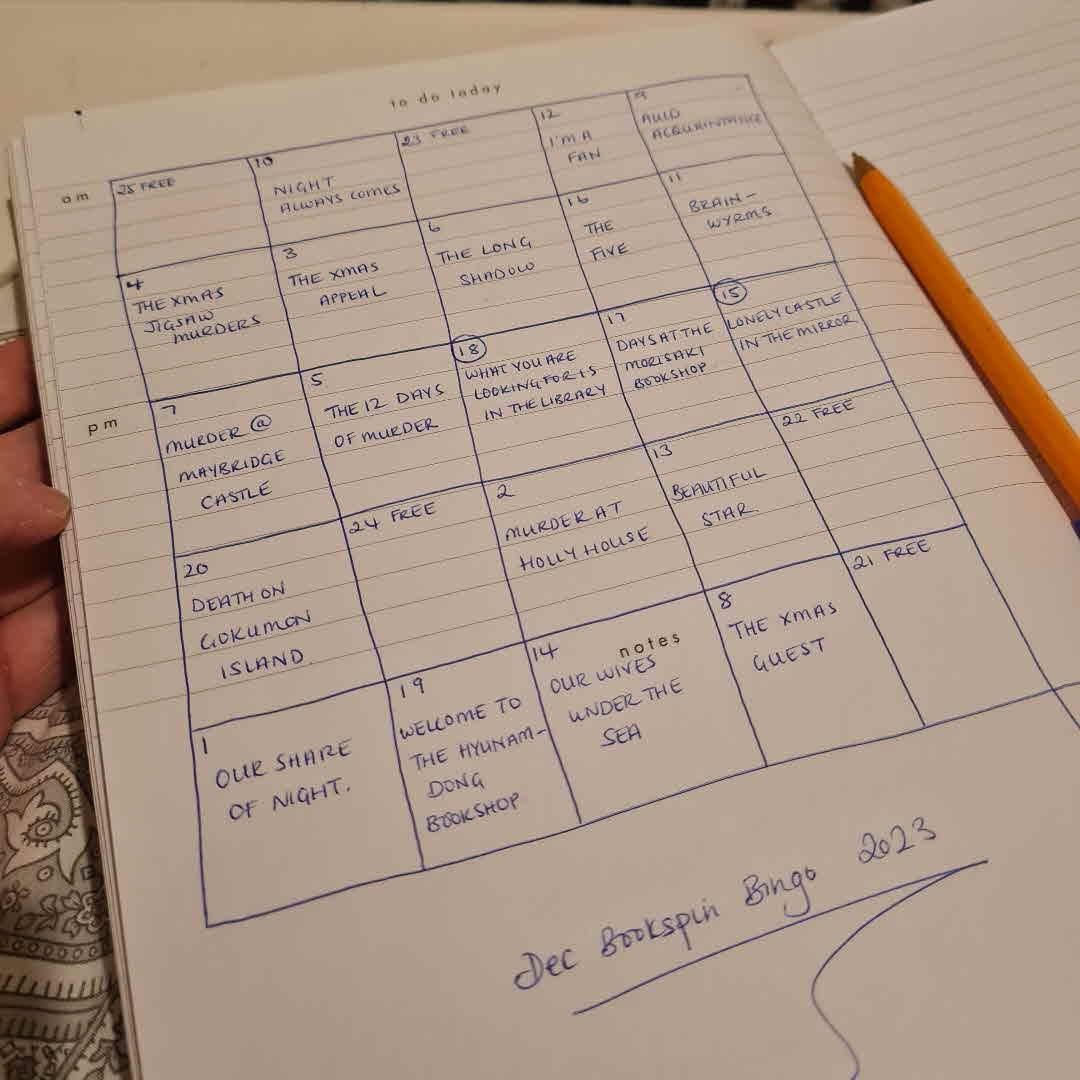 to do today
am
25 FREE
10
NIGHT
ALWAYS COMES
23 FREE
12
I'M A
FAN
9
AULD
ACQUAINTANCE
4
THE XMAS
JIGSAW
MURDERS
3
THE XMAS
APPEAL
6
THE LONG
SHADOW
16
THE
FIVE
11
BRAIN-
WYRMS
pm
7
MURDER @
MAYBRIDGE
CASTLE
5
THE 12 DAYS
OF MURDER
18
WHAT YOU ARE
LOOKING FOR IS
IN THE LIBRARY
17
DAYS AT THE
MORISAKI
BOOKSHOP
15
LONELY CASTLE
IN THE MIRROR
20
DEATH ON
GOKUMON
ISLAND.
24 FREE
2
MURDER AT
HOLLY HOUSE
13
BEAUTIFUL
STAR.
22 FREE
1
OUR SHARE
OF NIGHT.
19
WELCOME TO
THE HYUNAM-
DONG
BOOKSHOP
14
notes
OUR WIVES
UNDER THE
SEA
8
THE XMAS
GUEST
21 FREE
Dec Bookspin Bingo 2023